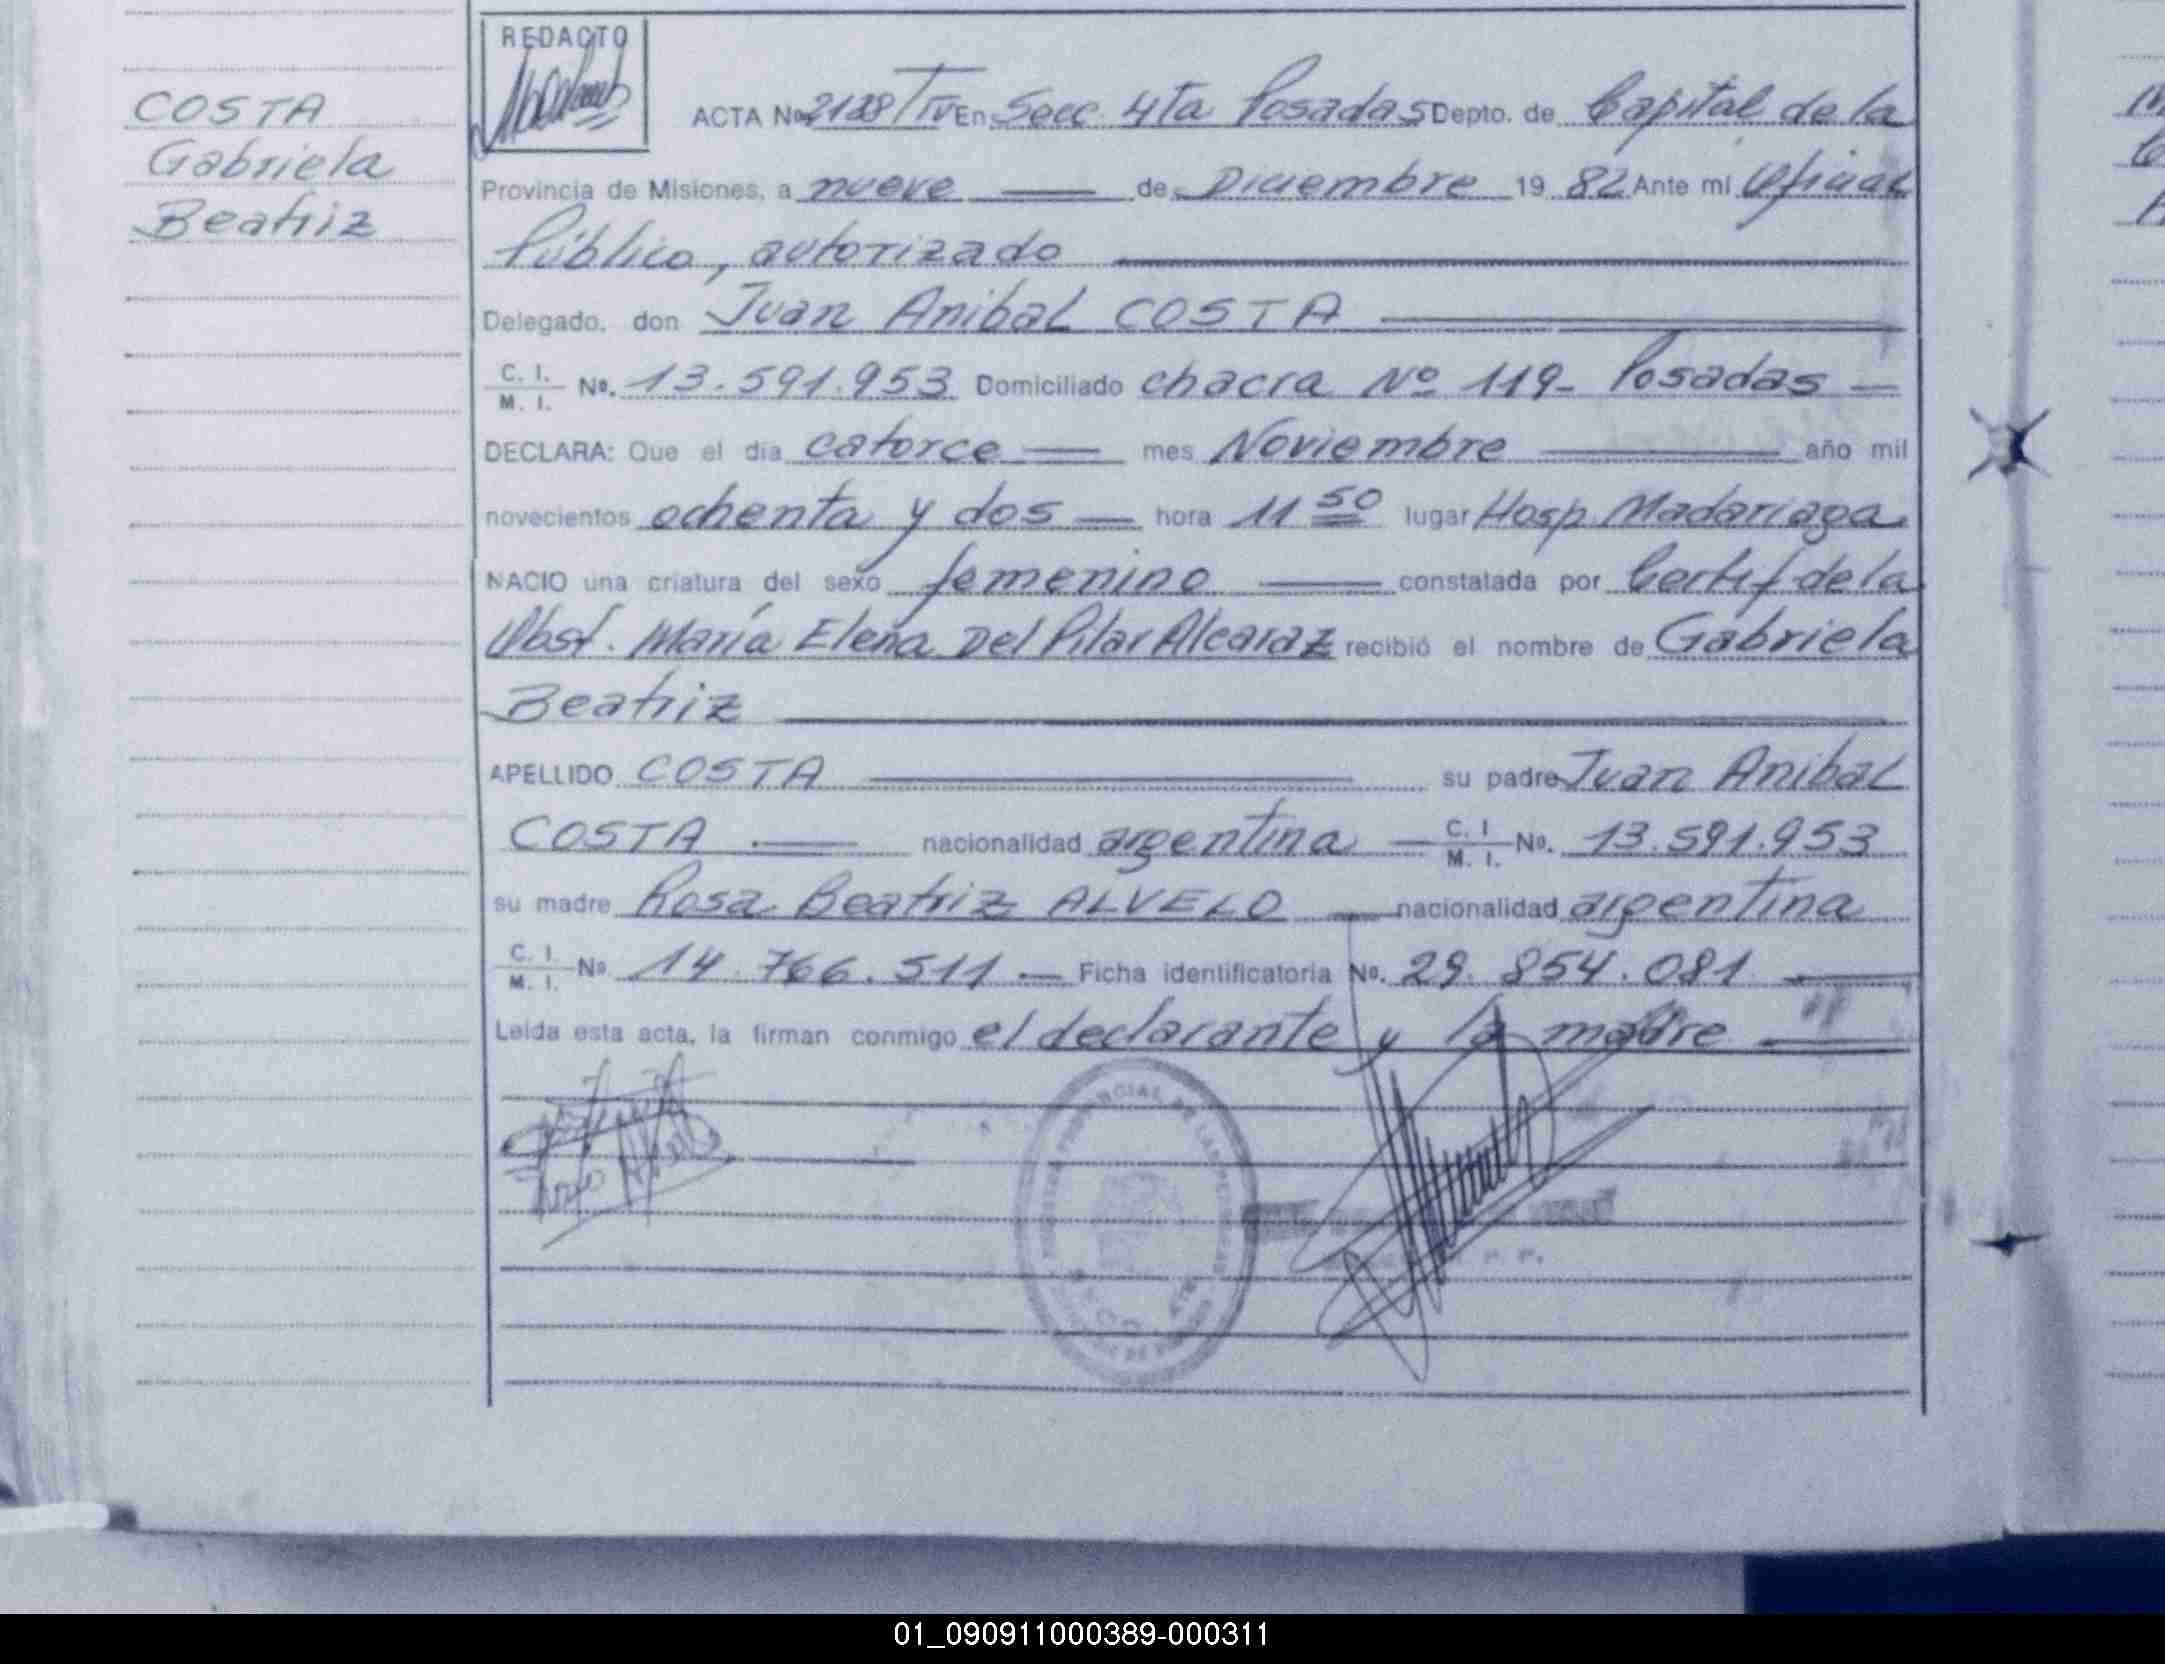 REDACTO
COSTA
Gabriela
Beatriz
ACTA No 2128/TIV En Secc 4Ta Posadas Depto. de Capital de la
Provincia de Misiones, a nueve de Diciembre 19 82 Ante mi Oficial
Público, autorizado
Delegado, don Juan Anibal COSTA
C. I. / M. I. Nº. 13.591.953 Domiciliado chacra Nº 119- Posadas
DECLARA: Que el día catorce mes Noviembre año mil
novecientos ochenta y dos hora 11 50 lugar Hosp. Madariaga
NACIO una criatura del sexo femenino constatada por Certif de la
Obst. María Elena Del Pilar Alcaraz recibió el nombre de Gabriela
Beatriz
APELLIDO COSTA su padre Juan Anibal
COSTA nacionalidad argentina C. I / M. I. Nº. 13.591.953
su madre Rosa Beatriz ALVELO nacionalidad argentina
C. I. / M. I. Nº 14.766.511 Ficha identificatoria Nº. 29.854.081
Leída esta acta, la firman conmigo el declarante y la madre
01_090911000389-000311